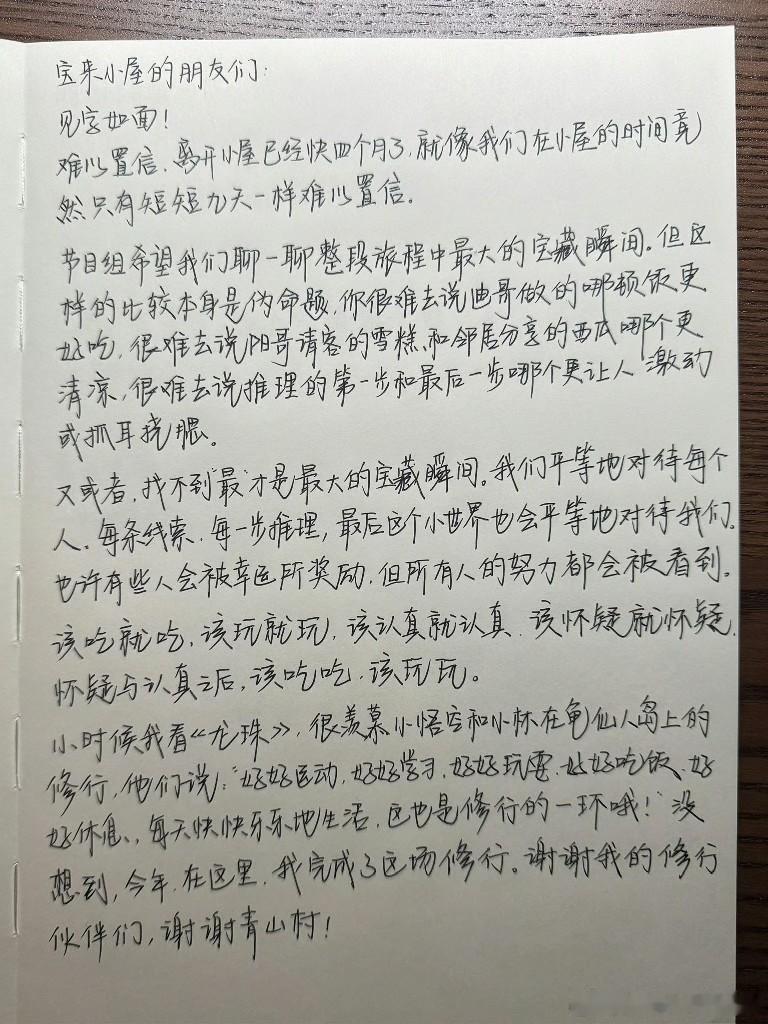 宝来小屋的朋友们:
见字如面!
难以置信,离开小屋已经快四个月了,就像我们在小屋的时间竟
然只有短短九天一样难以置信。
节目组希望我们聊一聊整段旅程中最大的宝藏瞬间。但这
样的比较本身是伪命题,你很难去说迪哥做的哪顿饭更
好吃,很难去说阳哥请客的雪糕和邻居分享的西瓜哪个更
清凉,很难去说推理的第一步和最后一步哪个更让人激动
或抓耳挠腮。
又或者,找不到"最"才是最大的宝藏瞬间。我们平等地对待每个
人、每条线索、每一步推理,最后这个小世界也会平等地对待我们。
也许有些人会被幸运所奖励,但所有人的努力都会被看到。
该吃就吃,该玩就玩,该认真就认真,该怀疑就怀疑,
怀疑与认真之后,该吃吃,该玩玩。
小时候我看《龙珠》,很羡慕小悟空和小林在龟仙人岛上的
修行,他们说:"好好运动,好好学习,好好玩耍,好好吃饭、好
好休息、每天快快乐乐地生活,这也是修行的一环哦!"没
想到,今年,在这里,我完成了这场修行。谢谢我的修行
伙伴们,谢谢青山村!